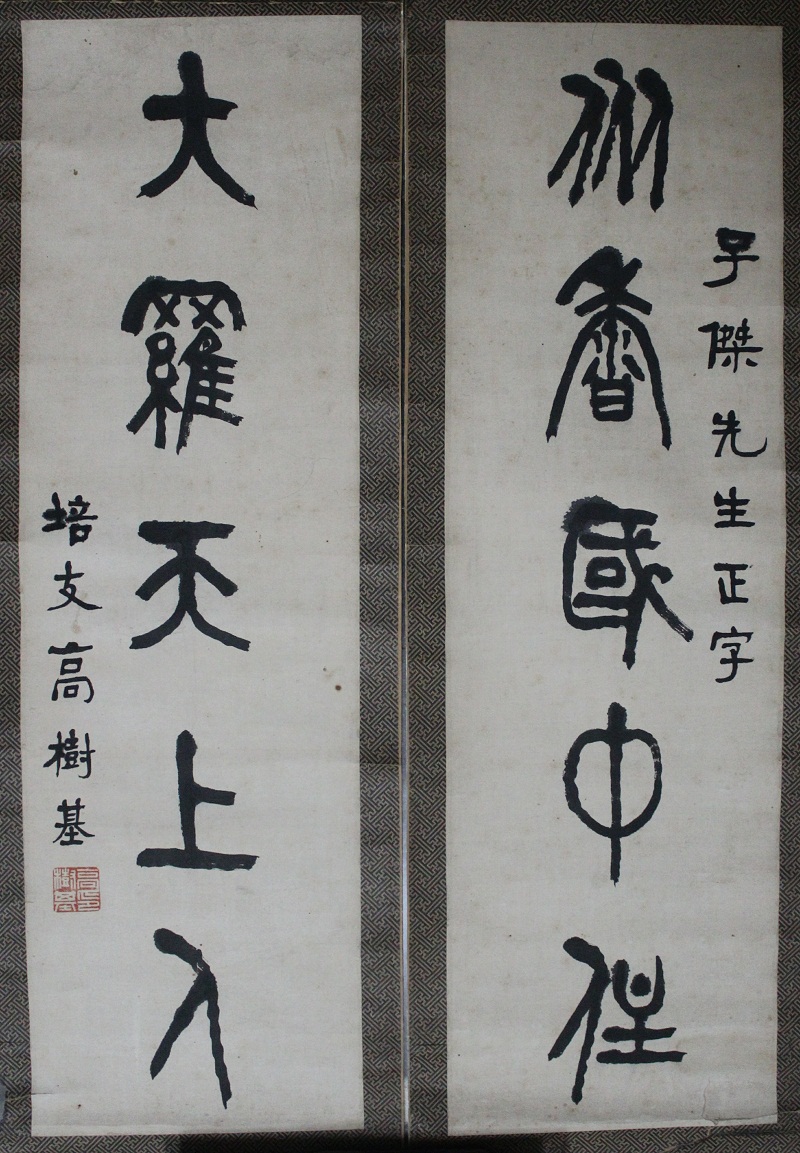 子傑先生正字
众香國中住
大羅天上人
培支高樹基
高印樹基